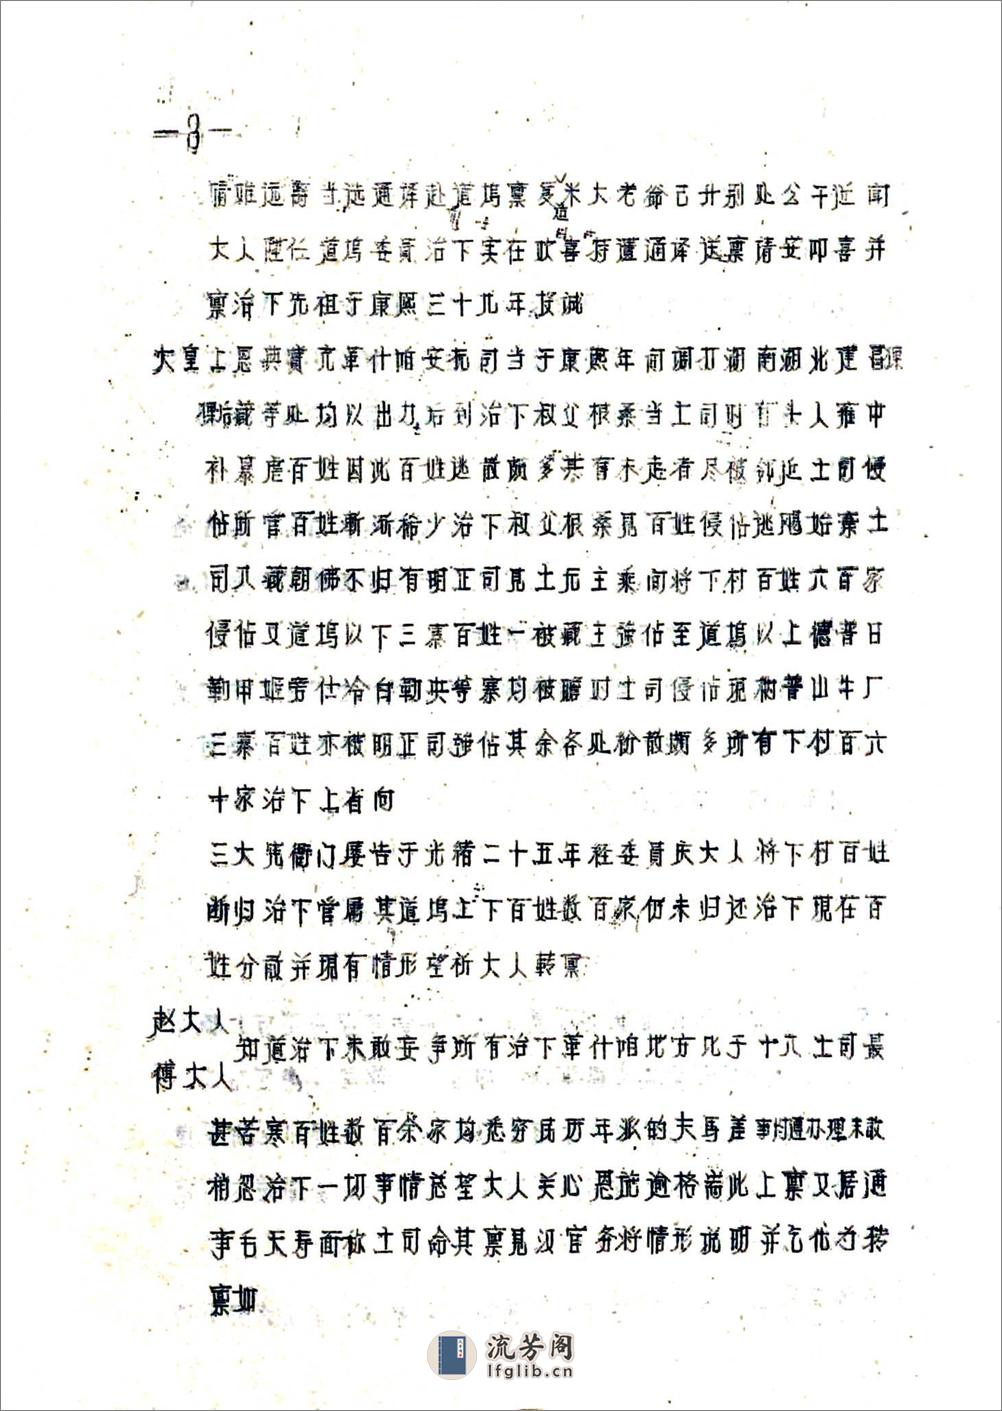 —8—
情雎远 当选通译赴道坞禀 米大老爷已升别处公干近闻
道
大人陞任道坞委员治下实在欢喜特遣通译送禀请安叩喜并
禀治下先祖于康熙三十九年投诚
大皇上恩典赏充革什咱安抚司当于康熙年间调打湖南湖北建昌
后藏等处均以出力后到治下叔父根桑当土司时有头人雍中
补暴虐百姓因此百姓逃散颇多其有未走者尽被邻近土司侵
佔所管百姓渐渐稀少治下叔父根桑见百姓侵佔逃 始弃土
司入藏朝佛不归有明正司见土无主乘间将下村百姓六百家
侵佔又道坞以下三寨百姓一被藏王强佔至道坞以上德普日
勒甲姬旁仕冷白勒央等寨均被瞻对土司侵佔现 普山牛厂
三寨百姓亦被明正司强佔其余各处纷散颇多所有下村百六
十家治下上省向
三大宪衙门屡告于光绪二十五年经委员庆大人将下村百姓
断归治下管属其道坞上下百姓数百家仍未归还治下现在百
姓分散并现有情形望祈大人转禀
赵大人
傅大人
知道治下未敢妄争所有治下革什咱地方比于十八土司最
甚苦寒百姓数百余家均悉穷民历年派的夫马差事均遵办理未敢
相忽治下一切事情总望大人关心恩施逾格 此上禀又据通
事毛天寿面称土司命其禀见汉官务将情形说明并乞代为转
禀如
流芳阁
lfglib.cn